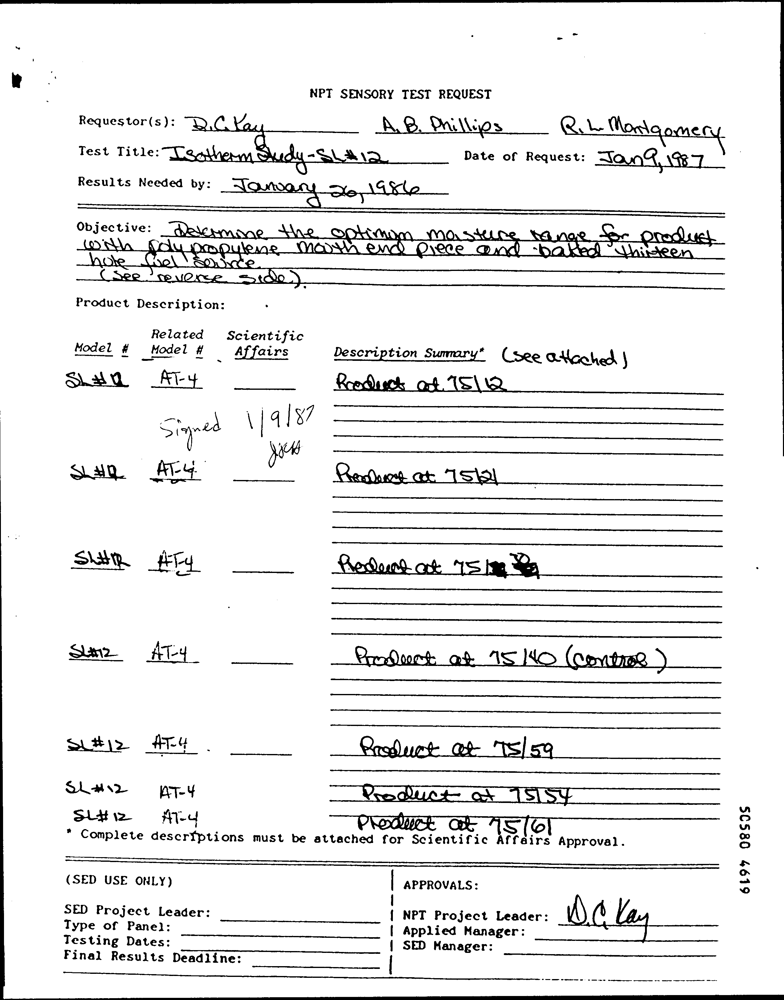 NPT SENSORY TEST REQUEST
Requestor(s): D.C. Kay A.B. Phillips R.L. Montgomery
Test Title: Isotherm Study-SL#12 Date of Request: Jan 9, 1987
Results Needed by: January 26, 1986
Objective: Determine the optimum moisture range for product
with polypropylene mouth end piece and baked thirteen
hole fuel source.
(see reverse side).
Product Description:
Related Scientific
Model # Model # Affairs Description Summary* (see attached)
SL#12 AT-4 Product at 75/12
Signed 1/9/87
SL#12 AT-4 Product at 75/21
SL#12 AT-4 Product at 75/
SL#12 AT-4 Product at 75/40 (control)
SL#12 AT-4 Product at 75/59
SL#12 AT-4 Product at 75/54
SL#12 AT-4 Product at 75/61
* Complete descriptions must be attached for Scientific Affairs Approval.
(SED USE ONLY) APPROVALS:
SED Project Leader: NPT Project Leader: D.C. Kay
Type of Panel: Applied Manager:
Testing Dates: SED Manager:
Final Results Deadline:
50580 4619